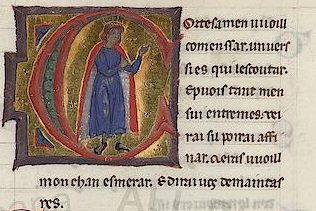 Cortesamen uuoill
comenssar. un uers
si es qui lescoutar.
E puois tant men
sui entremes. uei
rai sil poirai affi
nar. uuoill
mon chan esmerar. E dirai uos de maintas
res.